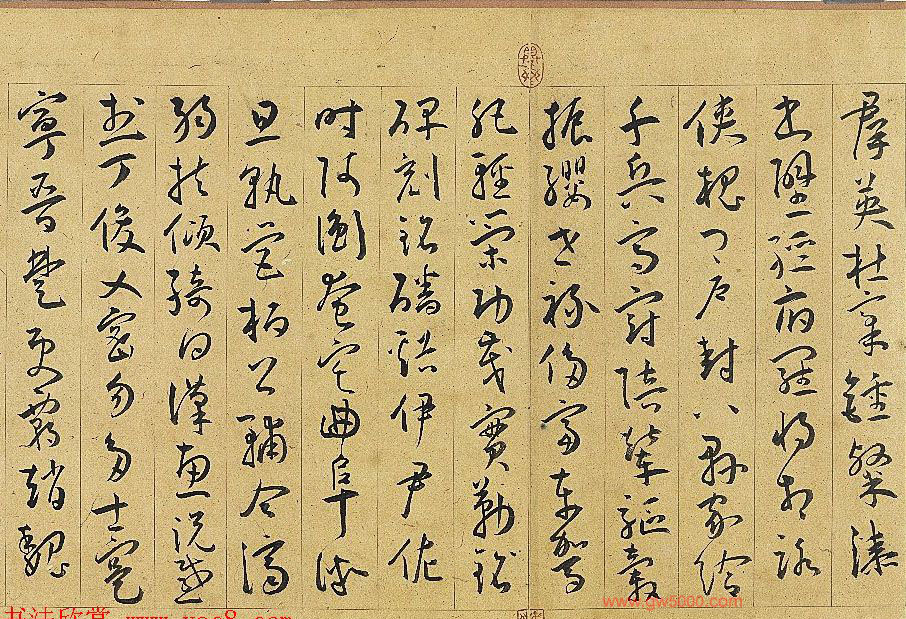 群英杜稾鍾隸漆
書壁經府羅將相路
俠槐卿戶封八縣家給
千兵高冠陪輦驅轂
振纓世祿侈富車駕
肥輕策功茂實勒銘
碑刻銘磻溪伊尹佐
時阿衡奄宅曲阜微
旦孰營桓公輔合濟
弱扶傾綺回漢惠說感
武丁俊乂密勿多士寔
寧晉楚更霸趙魏
www.gw5000.com
书法欣赏